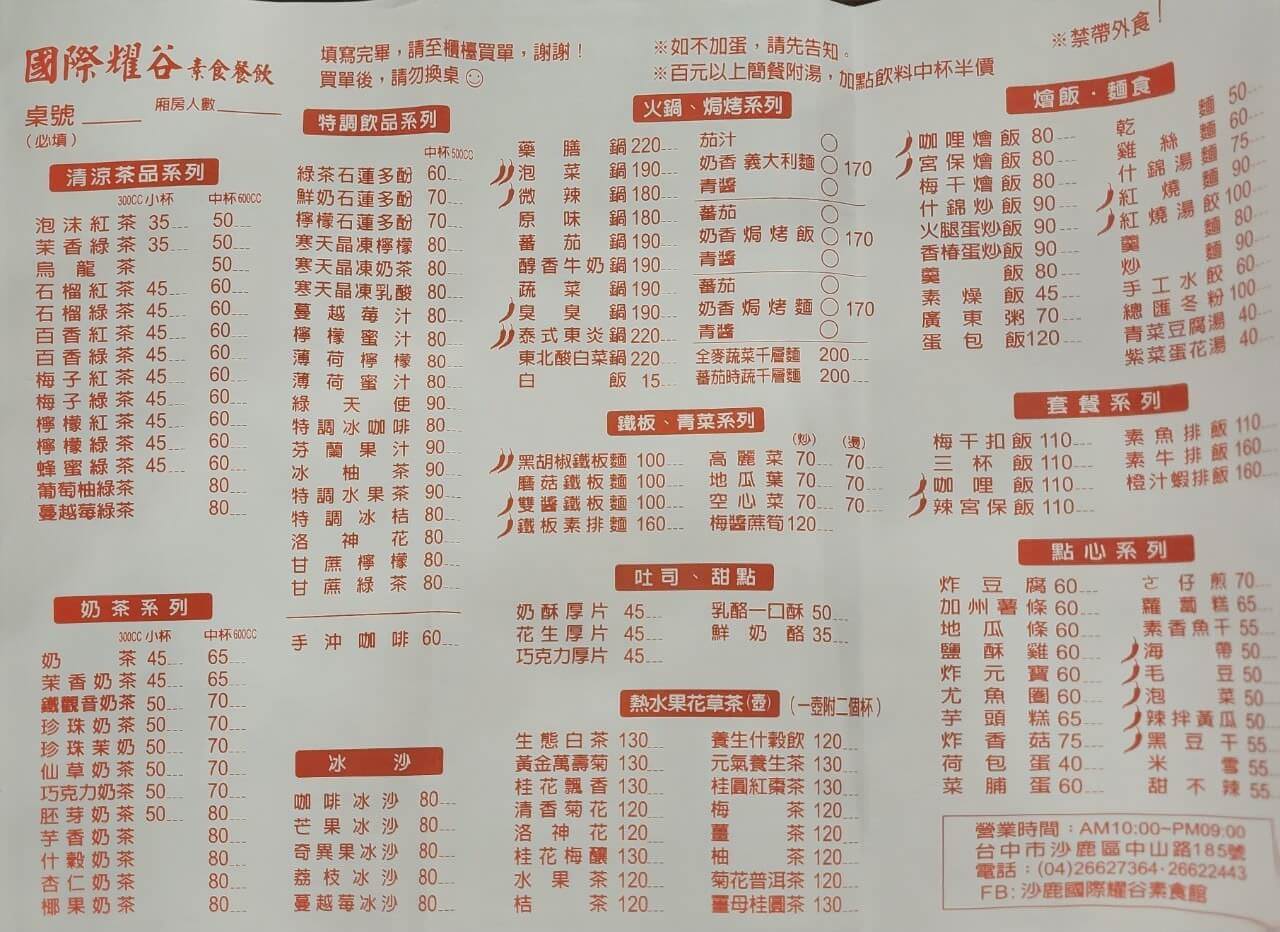 國際耀谷素食餐飲
桌號____ 廂房人數____
(必填)
填寫完畢，請至櫃檯買單，謝謝！
買單後，請勿換桌☺
※如不加蛋，請先告知。
※百元以上簡餐附湯，加點飲料中杯半價
※禁帶外食！
清涼茶品系列
300CC小杯 中杯600CC
泡沫紅茶 35 50
茉香綠茶 35 50
烏龍茶 50
石榴紅茶 45 60
石榴綠茶 45 60
百香紅茶 45 60
百香綠茶 45 60
梅子紅茶 45 60
梅子綠茶 45 60
檸檬紅茶 45 60
檸檬綠茶 45 60
蜂蜜綠茶 45 60
葡萄柚綠茶 80
蔓越莓綠茶 80
奶茶系列
300CC小杯 中杯600CC
奶茶 45 65
茉香奶茶 45 65
鐵觀音奶茶 50 70
珍珠奶茶 50 70
珍珠茉奶 50 70
仙草奶茶 50 70
巧克力奶茶 50 70
胚芽奶茶 50 80
芋香奶茶 80
什穀奶茶 80
杏仁奶茶 80
椰果奶茶 80
特調飲品系列
中杯500CC
綠茶石蓮多酚 60
鮮奶石蓮多酚 70
檸檬石蓮多酚 70
寒天晶凍檸檬 80
寒天晶凍奶茶 80
寒天晶凍乳酸 80
蔓越莓汁 80
檸檬蜜汁 80
薄荷檸檬 80
薄荷蜜汁 80
綠天使 90
特調冰咖啡 80
芬蘭果汁 90
冰柚茶 90
特調水果茶 90
特調冰桔 80
洛神花 80
甘蔗檸檬 80
甘蔗綠茶 80
手沖咖啡 60
冰沙
咖啡冰沙 80
芒果冰沙 80
奇異果冰沙 80
荔枝冰沙 80
蔓越莓冰沙 80
火鍋、焗烤系列
藥膳鍋 220
泡菜鍋 190
微辣鍋 180
原味鍋 180
蕃茄鍋 190
醇香牛奶鍋 190
蔬菜鍋 190
臭臭鍋 190
泰式東炎鍋 220
東北酸白菜鍋 220
白飯 15
茄汁 ○
奶香 義大利麵 ○ 170
青醬 ○
蕃茄 ○
奶香 焗烤飯 ○ 170
青醬 ○
蕃茄 ○
奶香 焗烤麵 ○ 170
青醬 ○
全麥蔬菜千層麵 200
蕃茄時蔬千層麵 200
鐵板、青菜系列
黑胡椒鐵板麵 100
磨菇鐵板麵 100
雙醬鐵板麵 100
鐵板素排麵 160
(炒) (燙)
高麗菜 70 70
地瓜葉 70 70
空心菜 70 70
梅醬蔗筍 120
吐司、甜點
奶酥厚片 45
花生厚片 45
巧克力厚片 45
乳酪一口酥 50
鮮奶酪 35
熱水果花草茶(壺) (一壺附二個杯)
生態白茶 130
黃金萬壽菊 130
桂花飄香 130
清香菊花 120
洛神花 120
桂花梅釀 130
水果茶 120
桔茶 120
養生什穀飲 120
元氣養生茶 130
桂圓紅棗茶 130
梅茶 120
薑茶 120
柚茶 120
菊花普洱茶 130
薑母桂圓茶 130
燴飯．麵食
咖哩燴飯 80
宮保燴飯 80
梅干燴飯 80
什錦炒飯 90
火腿蛋炒飯 90
香椿蛋炒飯 90
羹飯 80
素燥飯 45
廣東粥 70
蛋包飯 120
乾麵 50
雞絲麵 60
什錦湯麵 75
紅燒麵 90
紅燒湯餃 100
羹麵 80
炒麵 90
手工水餃 60
總匯冬粉 100
青菜豆腐湯 40
紫菜蛋花湯 40
套餐系列
梅干扣飯 110
三杯飯 110
咖哩飯 110
辣宮保飯 110
素魚排飯 110
素牛排飯 160
橙汁蝦排飯 160
點心系列
炸豆腐 60
加州薯條 60
地瓜條 60
鹽酥雞 60
炸元寶 60
尤魚圈 60
芋頭糕 65
炸香菇 75
荷包蛋 40
菜脯蛋 60
ㄜ仔煎 70
蘿蔔糕 65
素香魚干 55
海帶 50
毛豆 50
泡菜 50
辣拌黃瓜 50
黑豆干 55
米雪 55
甜不辣 55
營業時間：AM10:00~PM09:00
台中市沙鹿區中山路185號
電話：(04)26627364·26622443
FB: 沙鹿國際耀谷素食館